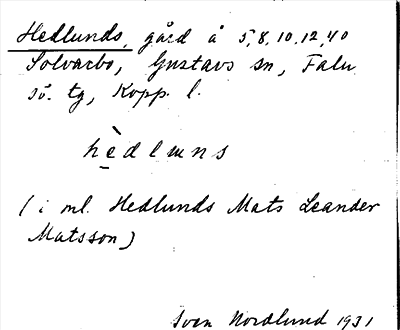 Hedlunds, gård å 5, 8, 10, 12, 40
Solvarbo, Gustavs sn, Falu
sö. tg, Kopp. l.
hèdlɯns
(i ml. Hedlunds Mats Leander
Matsson)
Sven Nordlund 1931